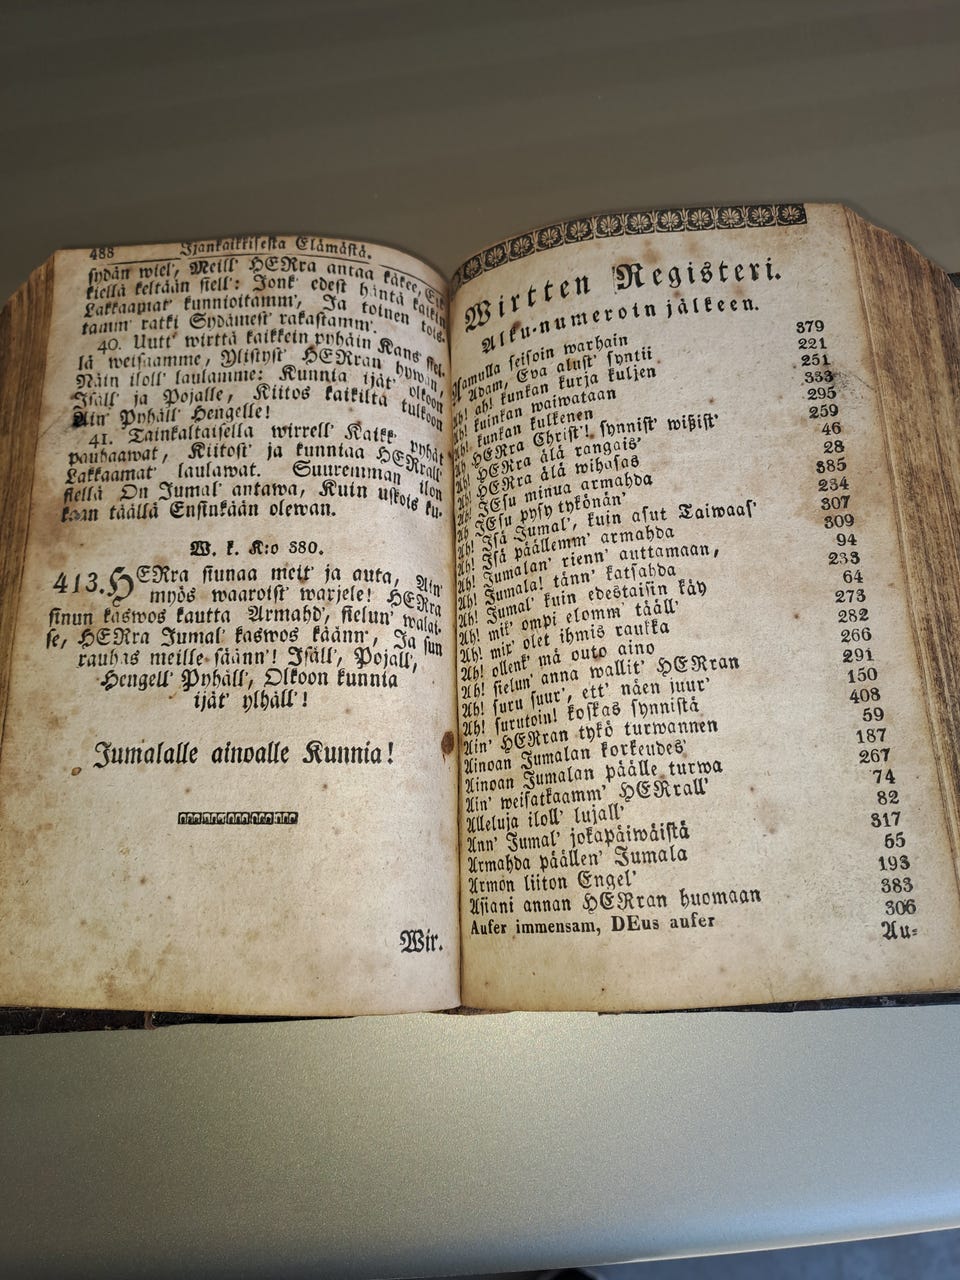 488 Ijankaikkisesta Elämästä.
sydän wiel', Meill' HERra antaa
kiellä keltään siell': Jonk' edest häntä
Lakkaamat' kunnioitamm', Ja toinen
tamm' ratki Sydämest' rakastamm'.
40. Uutt' wirttä kaikkein pyhäin Kans'
lä weisaamme, Ylistyst' HERran hywän,
Näin iloll' laulamme: Kunnia ijät' olkoon
Isäll' ja Pojalle, Kiitos kaikilta tulkoon
Ain' Pyhäll' Hengelle!
41. Tainkaltaisella wirrell' Kaikk' pyhät
pauhaawat, Kiitost' ja kunniaa HERrall'
Lakkaamat' laulawat. Suuremman ilon
siellä On Jumal' antawa, Kuin uskois ku-
kaan täällä Ensinkään olewan.
W. k. K:o 380.
413. HERra siunaa meit' ja auta, Ain'
myös waaroist' warjele! HERra
sinun kaswos kautta Armahd', sielun' walai-
se, HERra Jumal' kaswos käänn', Ja sun
rauhas meille säänn'! Isäll', Pojall',
Hengell' Pyhäll', Olkoon kunnia
ijät' ylhäll'!
Jumalalle ainoalle Kunnia!
Wir.
Wirtten Registeri.
Alku-numeroin jälkeen.
Aamulla seisoin warhain 379
Adam, Eva alust' syntii 221
Ah! ah! kunkan kurja kuljen 251
Ah! kuinkan waiwataan 333
Ah! kunkan kulkenen 295
Ah! HERra Christ'! synnist' wißist' 259
Ah! HERra älä rangais' 46
Ah! HERra älä wihasas 28
Ah! JEsu minua armahda 385
Ah! JEsu pysy tykönän' 234
Ah! Isä Jumal', kuin asut Taiwaas' 307
Ah! Isä päällemm' armahda 309
Ah! Jumalan' rienn' auttamaan, 94
Ah! Jumala! tänn' katsahda 233
Ah! Jumal' kuin edestaisin käy 64
Ah! mik' ompi elomm' tääll' 273
Ah! mix' olet ihmis raukka 282
Ah! ollenk' mä outo aino 266
Ah! sielun' anna wallit' HERran 291
Ah! suru suur', ett' näen juur' 150
Ah! surutoin! koskas synnistä 408
Ain' HERran tykö turwannen 59
Ainoan Jumalan korkeudes' 187
Ainoan Jumalan päälle turwa 267
Ain' weisatkaamm' HERrall' 74
Alleluja iloll' lujall' 82
Ann' Jumal' jokapäiwäistä 317
Armahda päällen' Jumala 55
Armon liiton Engel' 193
Asiani annan HERran huomaan 383
Aufer immensam, DEus aufer 306
Au-